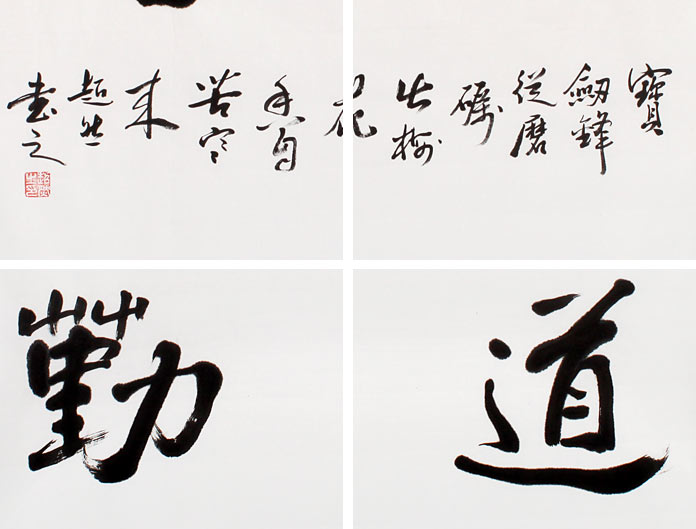 寶
劒鋒
從磨
礪
出梅
花
香自
苦寒
来
超然
書之
道
勤